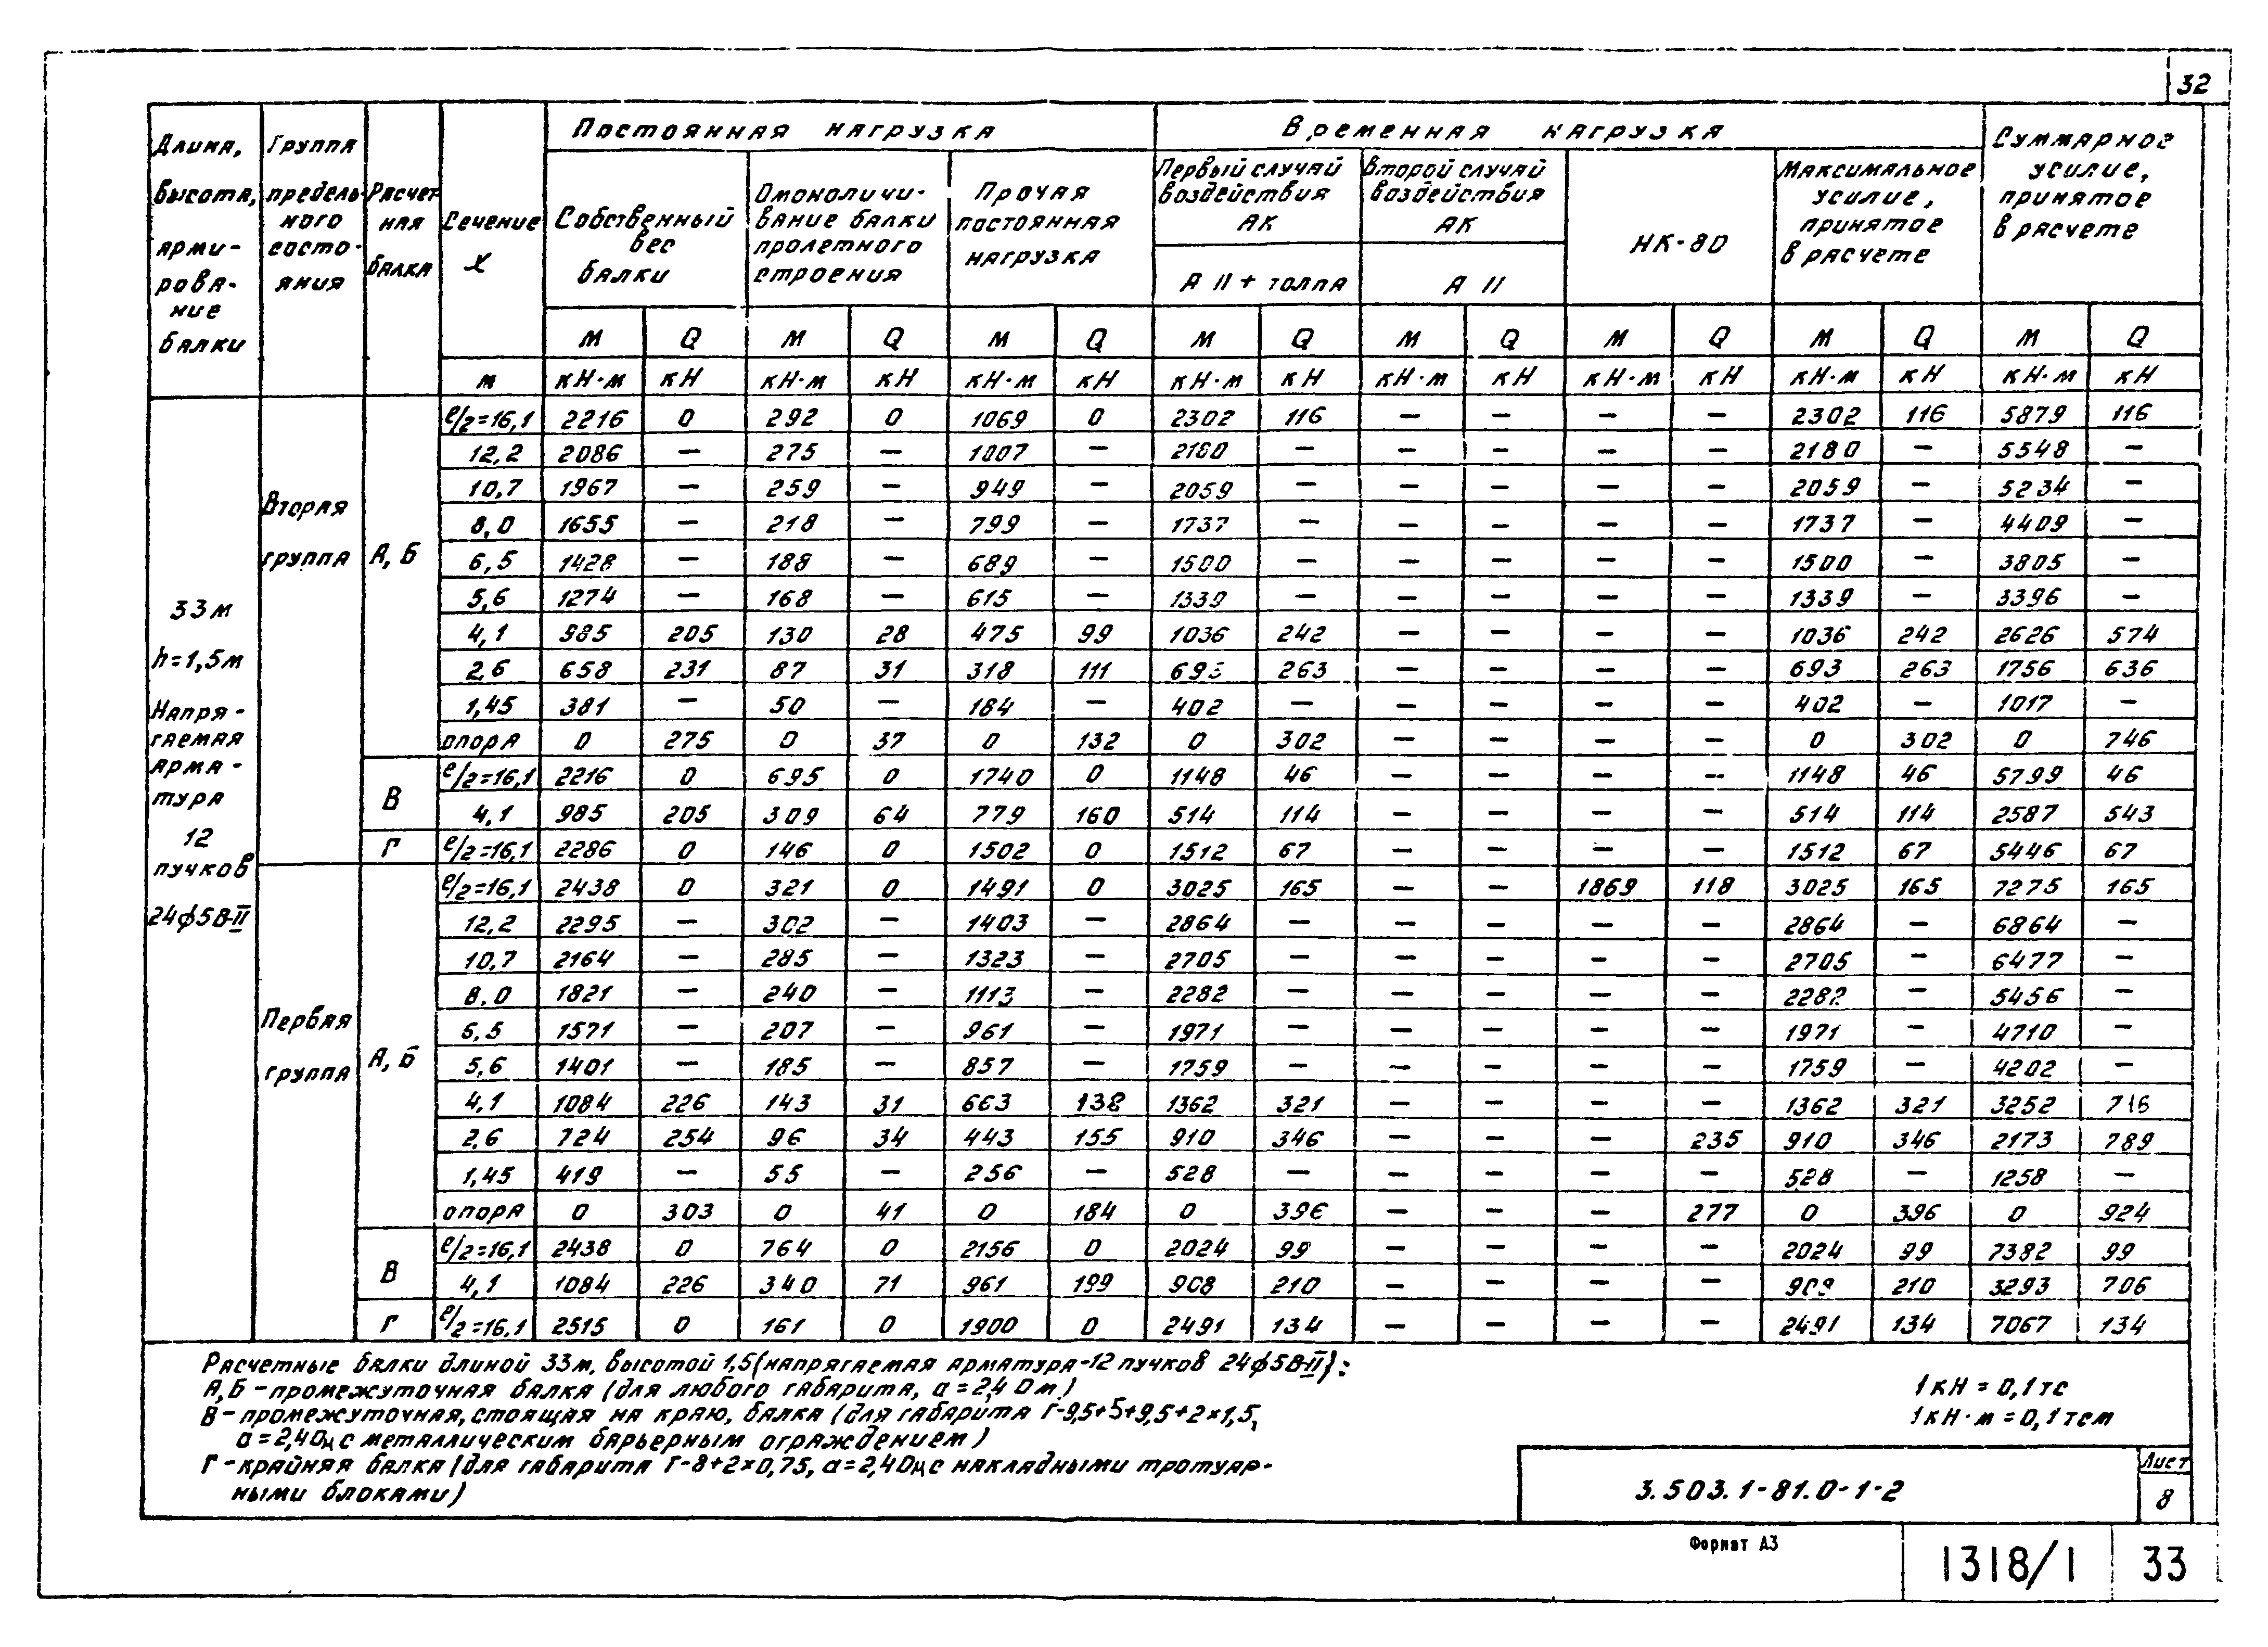 32
Длина, высота, армирование балки | Группа предельного состояния | Расчетная балка | Сечение X | Постоянная нагрузка | Временная нагрузка | Суммарное усилие, принятое в расчете
Собственный вес балки | Омоноличивание балки пролетного строения | Прочая постоянная нагрузка | Первый случай воздействия АК | Второй случай воздействия АК | НК-80 | Максимальное усилие, принятое в расчете
А 11 + толпа | А 11
М | Q | М | Q | М | Q | М | Q | М | Q | М | Q | М | Q | М | Q
м | кН·м | кН | кН·м | кН | кН·м | кН | кН·м | кН | кН·м | кН | кН·м | кН | кН·м | кН | кН·м | кН
33м
h=1,5м
Напрягаемая арматура
12 пучков
24ф5В-II
Вторая группа
А, Б
ℓ/2=16,1 | 2216 | 0 | 292 | 0 | 1069 | 0 | 2302 | 116 | — | — | — | — | 2302 | 116 | 5879 | 116
12,2 | 2086 | — | 275 | — | 1007 | — | 2180 | — | — | — | — | — | 2180 | — | 5548 | —
10,7 | 1967 | — | 259 | — | 949 | — | 2059 | — | — | — | — | — | 2059 | — | 5234 | —
8,0 | 1655 | — | 218 | — | 799 | — | 1737 | — | — | — | — | — | 1737 | — | 4409 | —
6,5 | 1428 | — | 188 | — | 689 | — | 1500 | — | — | — | — | — | 1500 | — | 3805 | —
5,6 | 1274 | — | 168 | — | 615 | — | 1339 | — | — | — | — | — | 1339 | — | 3396 | —
4,1 | 985 | 205 | 130 | 28 | 475 | 99 | 1036 | 242 | — | — | — | — | 1036 | 242 | 2626 | 574
2,6 | 658 | 231 | 87 | 31 | 318 | 111 | 693 | 263 | — | — | — | — | 693 | 263 | 1756 | 636
1,45 | 381 | — | 50 | — | 184 | — | 402 | — | — | — | — | — | 402 | — | 1017 | —
опора | 0 | 275 | 0 | 37 | 0 | 132 | 0 | 302 | — | — | — | — | 0 | 302 | 0 | 746
В
ℓ/2=16,1 | 2216 | 0 | 695 | 0 | 1740 | 0 | 1148 | 46 | — | — | — | — | 1148 | 46 | 5799 | 46
4,1 | 985 | 205 | 309 | 64 | 779 | 160 | 514 | 114 | — | — | — | — | 514 | 114 | 2587 | 543
Г
ℓ/2=16,1 | 2286 | 0 | 146 | 0 | 1502 | 0 | 1512 | 67 | — | — | — | — | 1512 | 67 | 5446 | 67
Первая группа
А, Б
ℓ/2=16,1 | 2438 | 0 | 321 | 0 | 1491 | 0 | 3025 | 165 | — | — | 1869 | 118 | 3025 | 165 | 7275 | 165
12,2 | 2295 | — | 302 | — | 1403 | — | 2864 | — | — | — | — | — | 2864 | — | 6864 | —
10,7 | 2164 | — | 285 | — | 1323 | — | 2705 | — | — | — | — | — | 2705 | — | 6477 | —
8,0 | 1821 | — | 240 | — | 1113 | — | 2282 | — | — | — | — | — | 2282 | — | 5456 | —
6,5 | 1571 | — | 207 | — | 961 | — | 1971 | — | — | — | — | — | 1971 | — | 4710 | —
5,6 | 1401 | — | 185 | — | 857 | — | 1759 | — | — | — | — | — | 1759 | — | 4202 | —
4,1 | 1084 | 226 | 143 | 31 | 663 | 138 | 1362 | 321 | — | — | — | — | 1362 | 321 | 3252 | 716
2,6 | 724 | 254 | 96 | 34 | 443 | 155 | 910 | 346 | — | — | — | 235 | 910 | 346 | 2173 | 789
1,45 | 419 | — | 55 | — | 256 | — | 528 | — | — | — | — | — | 528 | — | 1258 | —
опора | 0 | 303 | 0 | 41 | 0 | 184 | 0 | 396 | — | — | — | 277 | 0 | 396 | 0 | 924
В
ℓ/2=16,1 | 2438 | 0 | 764 | 0 | 2156 | 0 | 2024 | 99 | — | — | — | — | 2024 | 99 | 7382 | 99
4,1 | 1084 | 226 | 340 | 71 | 961 | 199 | 908 | 210 | — | — | — | — | 908 | 210 | 3293 | 706
Г
ℓ/2=16,1 | 2515 | 0 | 161 | 0 | 1900 | 0 | 2491 | 134 | — | — | — | — | 2491 | 134 | 7067 | 134
Расчетные балки длиной 33м, высотой 1,5 (напрягаемая арматура-12 пучков 24ф5В-II):
А, Б – промежуточная балка (для любого габарита, а = 2,40м)
В – промежуточная, стоящая на краю, балка (для габарита Г-9,5+5+9,5+2×1,5,
а = 2,40м, с металлическим барьерным ограждением)
Г – крайняя балка (для габарита Г-8+2×0,75, а = 2,40м, с накладными тротуар-
ными блоками)
1 кН = 0,1 тс
1 кН·м = 0,1 тсм
3.503.1-81.0-1-2
Лист
8
Формат А3
1318/1
33